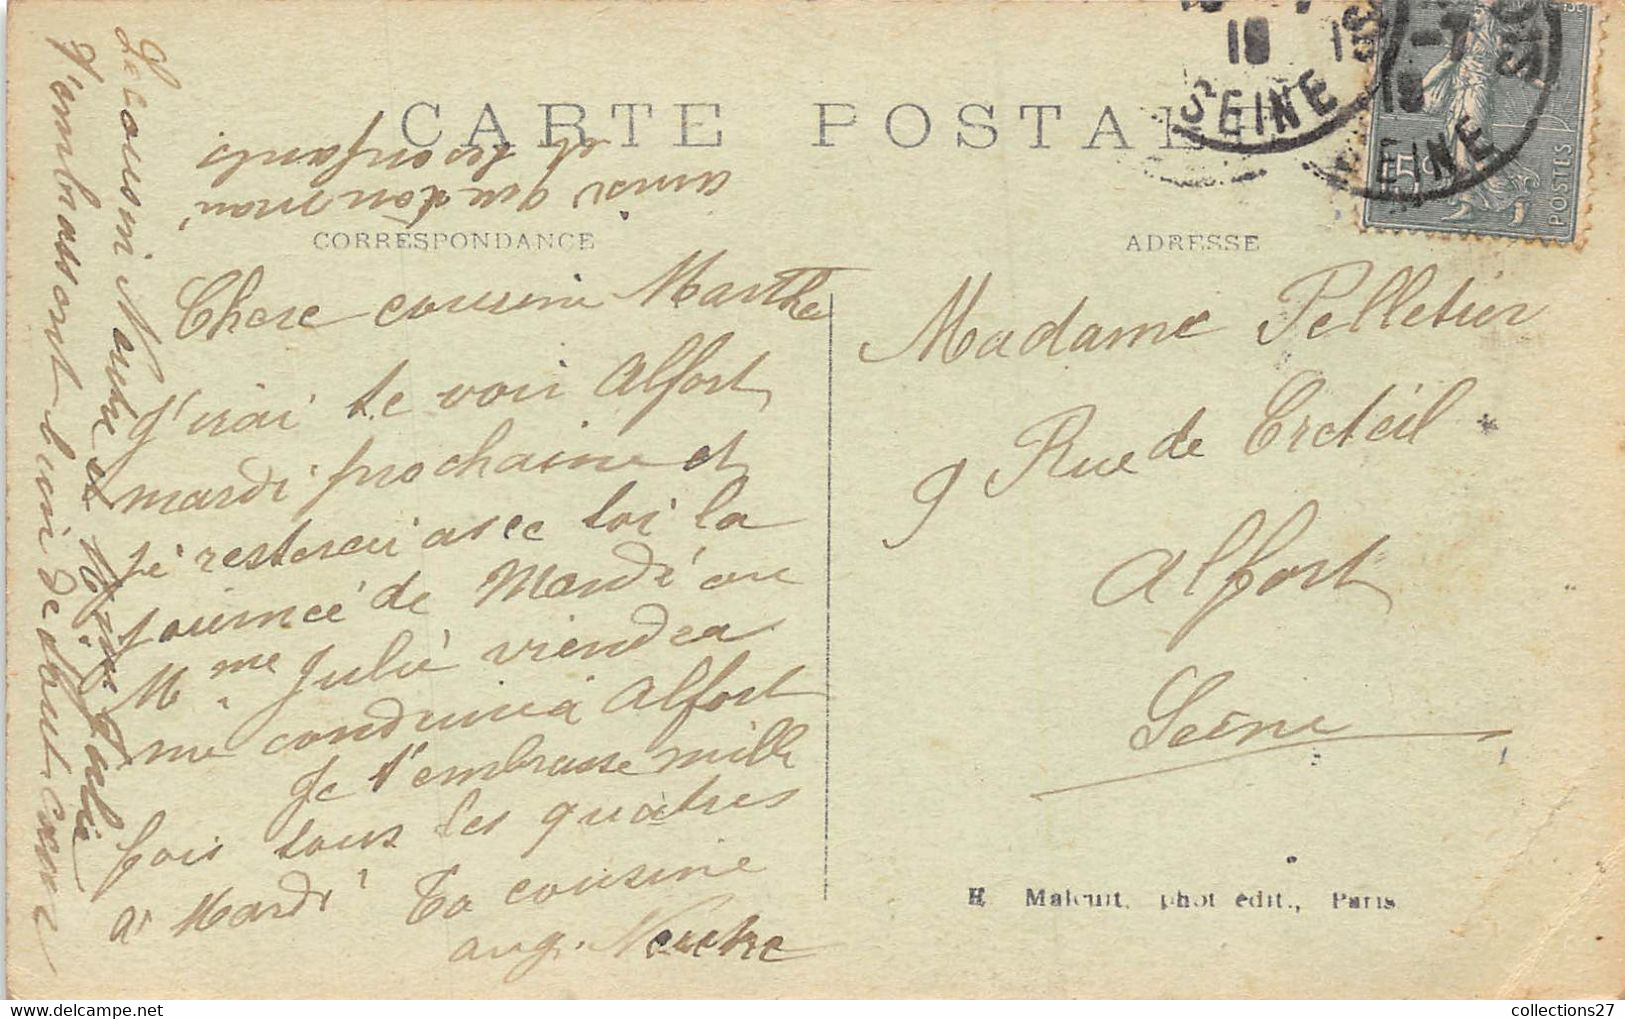 CARTE POSTALE
CORRESPONDANCE
ADRESSE
Chere cousine Marthe
J'irai te voir Alfort
mardi prochaine et
je resterai avec toi la
journeé de Mardi ou
Mme Julie viendra
me conduire à Alfort
Je t'embrasse mille
fois tous les quatres
a Mardi Ta cousine
aug.
Le cousin et Mme Julie
t'embrassent bien de tout cœur
ainsi que ton mari
et tes enfants
Madame Pelletier
9 Rue de Creteil
Alfort
Seine
H. Malcuit, phot édit., Paris
18
SEINE
18
SEINE
15c
POSTES
collections27